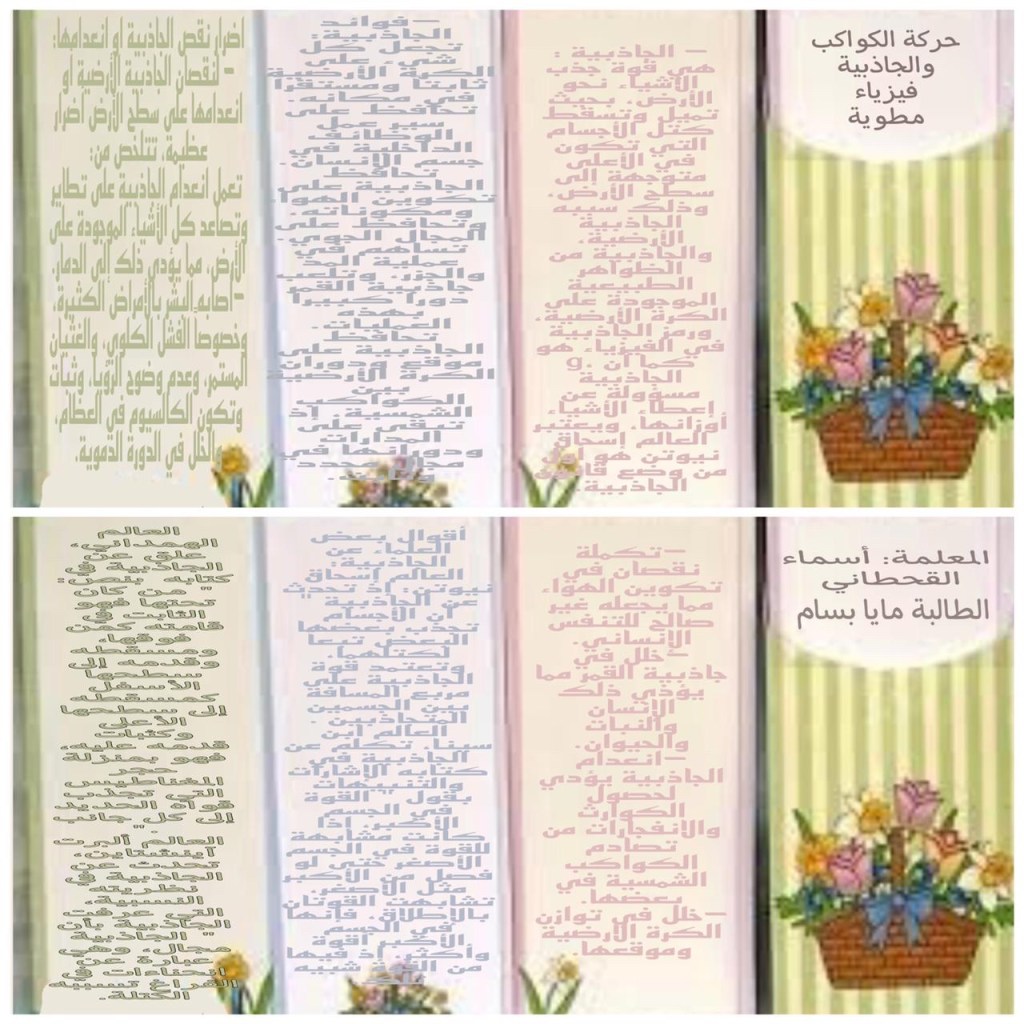 حركة الكواكب
والجاذبية
فيزياء
مطوية
– الجاذبية :
هي قوة جذب
الأشياء نحو
الأرض. بحيث
تميل وتسقط
كتل الأجسام
التي تكون
في الأعلى
متوجهة إلى
سطح الأرض.
وذلك سببه
الجاذبية
الأرضية.
والجاذبية من
الظواهر
الطبيعية
الموجودة على
الكرة الأرضية.
ورمز الجاذبية
في الفيزياء هو
g. كما أن
الجاذبية
مسؤولة عن
إعطاء الأشياء
أوزانها. ويعتبر
العالم إسحاق
نيوتن هو أول
من وضع
الجاذبية.
–فوائد
الجاذبية:
تجعل كل
شيء على
الكرة الأرضية
ثابتا ومستقرا
في مكانه.
تحافظ على
سير عمل
الوظائف
الداخلية في
جسم الإنسان.
تحافظ
الجاذبية على
تكوين الهواء
ومكوناته.
وتحافظ على
المجال الجوي.
تساهم في
عملية المد
والجزر. وتلعب
جاذبية القمر
دورا كبيرا
بهذه
العمليات.
تحافظ
الجاذبية على
موقع ودوران
الكرة الأرضية
بين
الكواكب
الشمسية. إذ
تبقى على
المدارات
ودورانها في
محدد
اضرار نقص الجاذبية او انعدامها:
– لنقصان الجاذبية الأرضية أو
انعدامها على سطح الأرض أضرار
عظيمة، تتلخص من:
تعمل انعدام الجاذبية على تطاير
وتصاعد كل الأشياء الموجودة على
الأرض، مما يؤدي ذلك إلى الدمار.
–اصابه البشر بالأمراض الكثيرة،
وخصوصاً الفشل الكلوي، والغثيان
المستمر، وعدم وضوح الرؤيا، وثبات
وتكون الكالسيوم في العظام،
والخلل في الدورة الدموية.
المعلمة: أسماء
القحطاني
الطالبة مايا بسام
–تكملة
نقصان في
تكوين الهواء.
مما يجعله غير
صالح للتنفس
الإنساني.
–خلل في
جاذبية القمر مما
يؤذي ذلك
الإنسان
والنبات
والحيوان.
–انعدام
الجاذبية يؤدي
لحصول
الكوارث
والانفجارات من
تصادم
الكواكب
الشمسية في
بعضها.
–خلل في توازن
الكرة الأرضية
وموقعها.
أقوال بعض
العلماء عن
الجاذبية:
العالم إسحاق
نيوتن: إذ تحدث
عن الجاذبية "
أن الأجسام
تجذب بعضها
البعض تبعا
لكتلهما.
وتعتمد قوة
الجاذبية على
مربع المسافة
بين الجسمين
المتجاذبين".
العالم ابن
سينا. تكلم عن
الجاذبية في
كتابه الإشارات
والتنبيهات
بقول "القوة
في الجسم
الأكبر. إذا
كانت مشابهة
للقوة في الجسم
الأصغر حتى لو
فصل من الأكبر
مثل الأصغر.
تشابهت القوتان
بالإطلاق فإنها
في الجسم
الأكبر أقوة
وأكثر. إذ فيها
من القوة شبيه
تلك
العالم
الهمداني،
علق عن
الجاذبية في
كتابه بنص:
" من كان
تحتها فهو
الثابت في
قامته كمن
فوقها،
ومسقطه
وقدمه إلى
سطحها
الأسفل
كمسقطه
إلى سطحها
الأعلى
وكثبات
قدمه عليه،
فهو بمنزلة
حجر
المغناطيس
التي تجذب
قواه الحديد
إلى كل جانب
".
العالم ألبرت
آينشتاين،
تحدث عن
الجاذبية في
نظريته
النسبية،
التي عرفت
الجاذبية بأن
" الجاذبية
مجال، وهي
عبارة عن
انحناءات في
الفراغ تسببه
الكتلة.